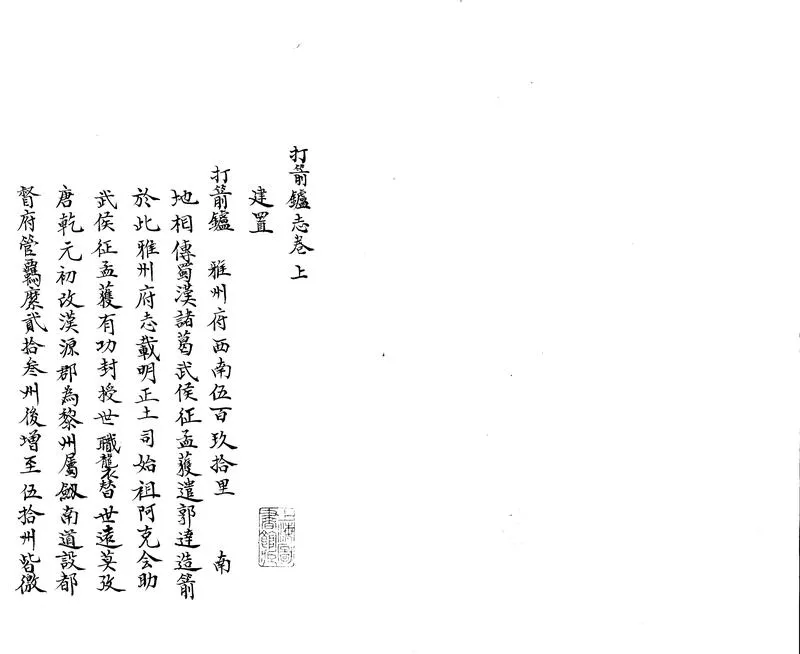 打箭鑪志卷上
建置
打箭鑪 雅州府西南伍百玖拾里 南
地相傳蜀漢諸葛武侯征孟獲遣郭達造箭
於此雅州府志載明正土司始祖阿克会助
武侯征孟獲有功封授世職襲替世遠莫攷
唐乾元初改漢源郡為黎州屬劔南道設都
督府管羈縻貳拾叁州後增至伍拾州皆徼
上海圖書館